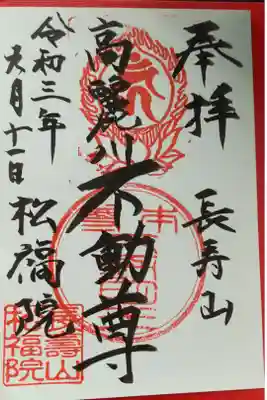 奉拝
長寿山
高麗川不動尊
松福院
令和三年
六月十一日
長壽山
松福院